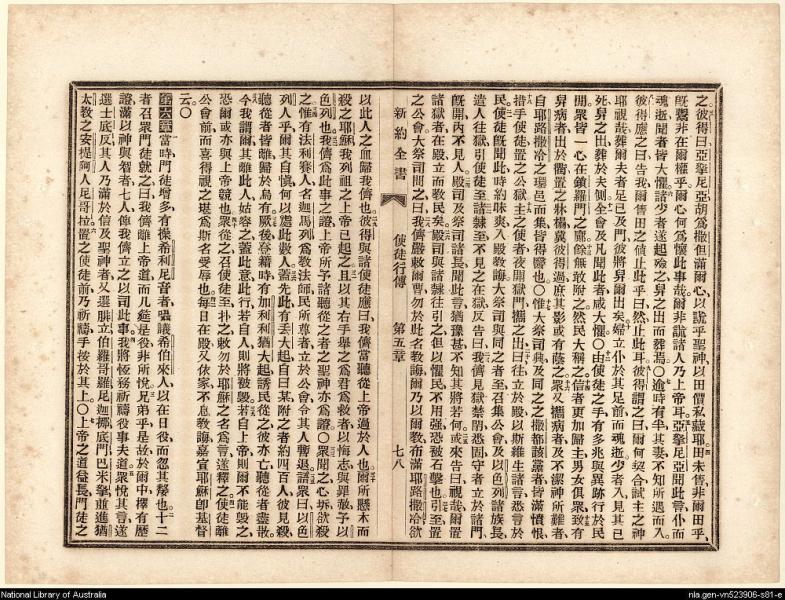 之彼得曰亞拏尼亞胡爲撒但滿爾心以誑乎聖神以田價私藏耶田未售非爾田乎
旣鬻非在爾權乎爾心何爲懷此事哉爾非誑諸人乃上帝耳亞拏尼亞聞此言仆而
魂逝聞者皆大懼諸少者遂起殮之舁之出而葬焉〇逾時有半其妻不知所遇而入
彼得應之曰告我爾售田之値止此乎曰然止此耳彼得謂之曰爾何契合試主之神
耶視哉葬爾夫者足已及門彼將舁爾出矣婦立仆於其足前而魂逝少者入見其已
死舁之出葬於夫側全會及凡聞此者咸大懼〇由使徒之手有多兆與異跡行於民
間衆皆一心在鎖羅門之廊餘無敢附之然民大稱之信者更加歸主男女俱衆致有
舁病者出於衢置之牀榻冀彼得過庶其影或有蔭之衆又攜病者及不潔神所難者
自耶路撒冷之環邑而集皆得醫也〇惟大祭司與及同之之撒都該黨者皆滿憤恨
措手使徒置之公獄主之使者夜開獄門攜之出曰往立於殿以斯維生諸言悉言於
民使徒旣聞此時約昧爽入殿敎誨大祭司與同之者至召集公會及以色列諸族長
遣人往獄引使徒至諸隸至不見之在獄反告曰我儕見獄禁閉悉固守者立於諸門
旣開內不見人殿司及祭司諸長聞此言猶豫甚不知其將若何或來告曰視哉爾置
諸獄者在殿立而敎民矣殿司與諸隸往引之但以懼民不用強恐被石擊也引至置
之公會大祭司問之曰我儕嚴敕爾曹勿於此名敎誨爾乃以爾敎布滿耶路撒冷欲
新約全書
使徒行傳
第五章
七八
以此人之血歸我儕也彼得與諸使徒應曰我儕當聽從上帝過於人也爾所懸木而
殺之耶穌我列祖之上帝已起之且以其右手舉之爲君爲救者以悔志與罪赦予以
色列也我儕爲此事之證上帝所予諸聽從之者之聖神亦爲證〇衆聞之心坼欲殺
之惟有法利賽人名迦馬列爲敎法師民所尊者立於公會令其人暫退諸衆曰以色
列人乎爾其自愼何以處此數人蓋先此有丟大起自曰某附之者約四百人彼見殺
聽從者皆離歸於烏有厥後登籍時有加利利猶大起誘民從之彼亦亡聽從者盡散
今我謂爾其離此人姑容之蓋此意此行若自人則將被毀若自上帝則爾不能毀之
恐爾或亦與上帝競也衆從之召使徒至扑之敕勿於耶穌之名爲言遂釋之使徒離
公會前而喜得視之堪爲斯名受辱也每日在殿又依家不息敎誨嘉宣耶穌卽基督
云〇
第六章當時門徒增多有操希利尼音者嘓議希伯來人以在日役而忽其嫠也十二
者召衆門徒就之曰我儕離上帝道而几筵是役非所悅兄弟乎是故於爾中擇有歷
證滿以神與智者七人俾我儕立之以司此事我將恆務祈禱役事夫道衆悅其言遂
選士底反其人乃滿於信及聖神者又選腓立伯羅哥羅尼迦挪底門巴米拏並進猶
太敎之安提阿人尼哥拉置之使徒前乃祈禱手按於其上〇上帝之道益長門徒之
National Library of Australia
nla.gen-vn523906-s81-e